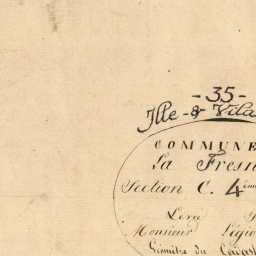 - 35 -
Ille - & Vila
COMMUNE
La Fresn
Section C. 4ème
Levé
Monsieur Légio
Géomètre du Cadast